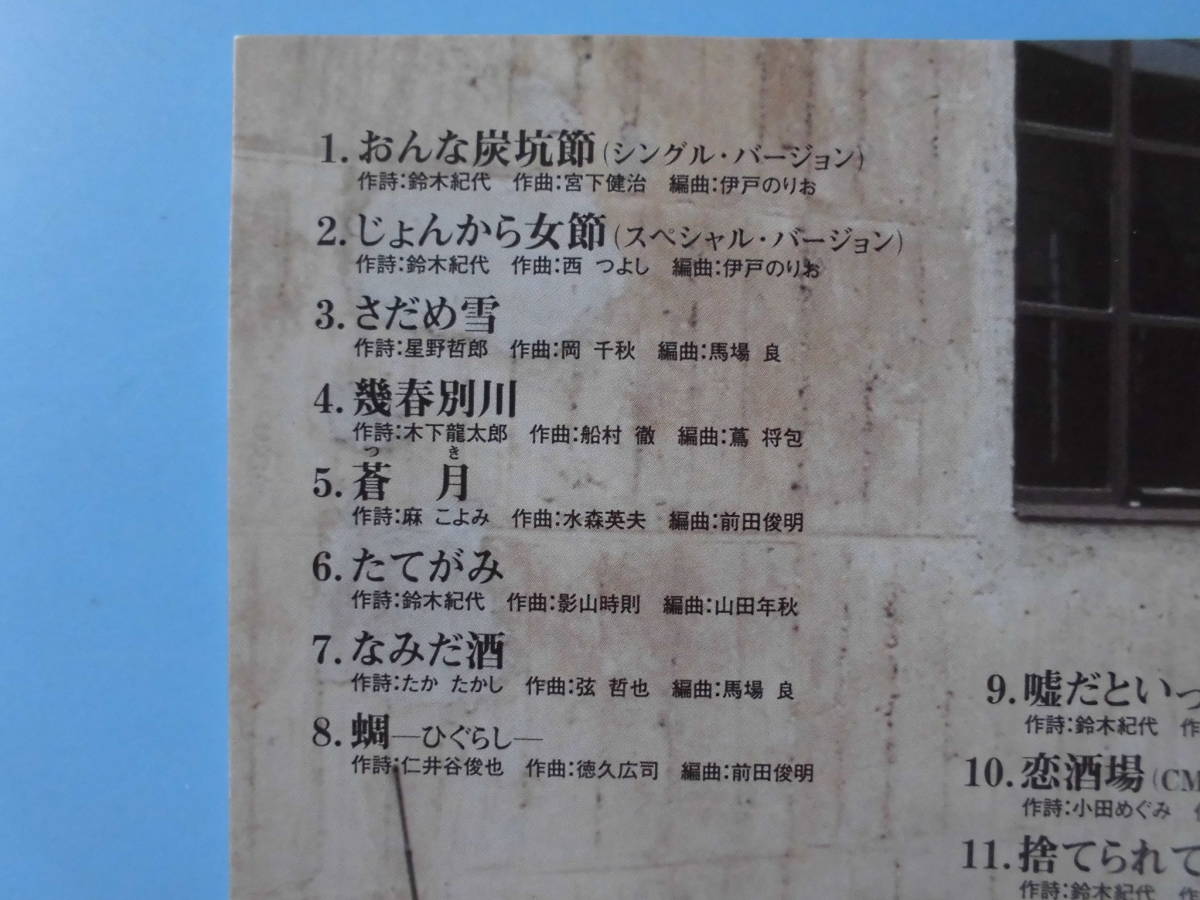 1. おんな炭坑節(シングル・バージョン)
作詩:鈴木紀代 作曲:宮下健治 編曲:伊戸のりお
2. じょんから女節(スペシャル・バージョン)
作詩:鈴木紀代 作曲:西 つよし 編曲:伊戸のりお
3. さだめ雪
作詩:星野哲郎 作曲:岡 千秋 編曲:馬場 良
4. 幾春別川
作詩:木下龍太郎 作曲:船村 徹 編曲:蔦 将包
つ き
5. 蒼 月
作詩:麻 こよみ 作曲:水森英夫 編曲:前田俊明
6. たてがみ
作詩:鈴木紀代 作曲:影山時則 編曲:山田年秋
7. なみだ酒
作詩:たか たかし 作曲:弦 哲也 編曲:馬場 良
8. 蜩―ひぐらし―
作詩:仁井谷俊也 作曲:徳久広司 編曲:前田俊明
9. 嘘だといっ
作詩:鈴木紀代 作
10. 恋酒場(CM
作詩:小田めぐみ
11. 捨てられて
作詩:鈴木紀代 作